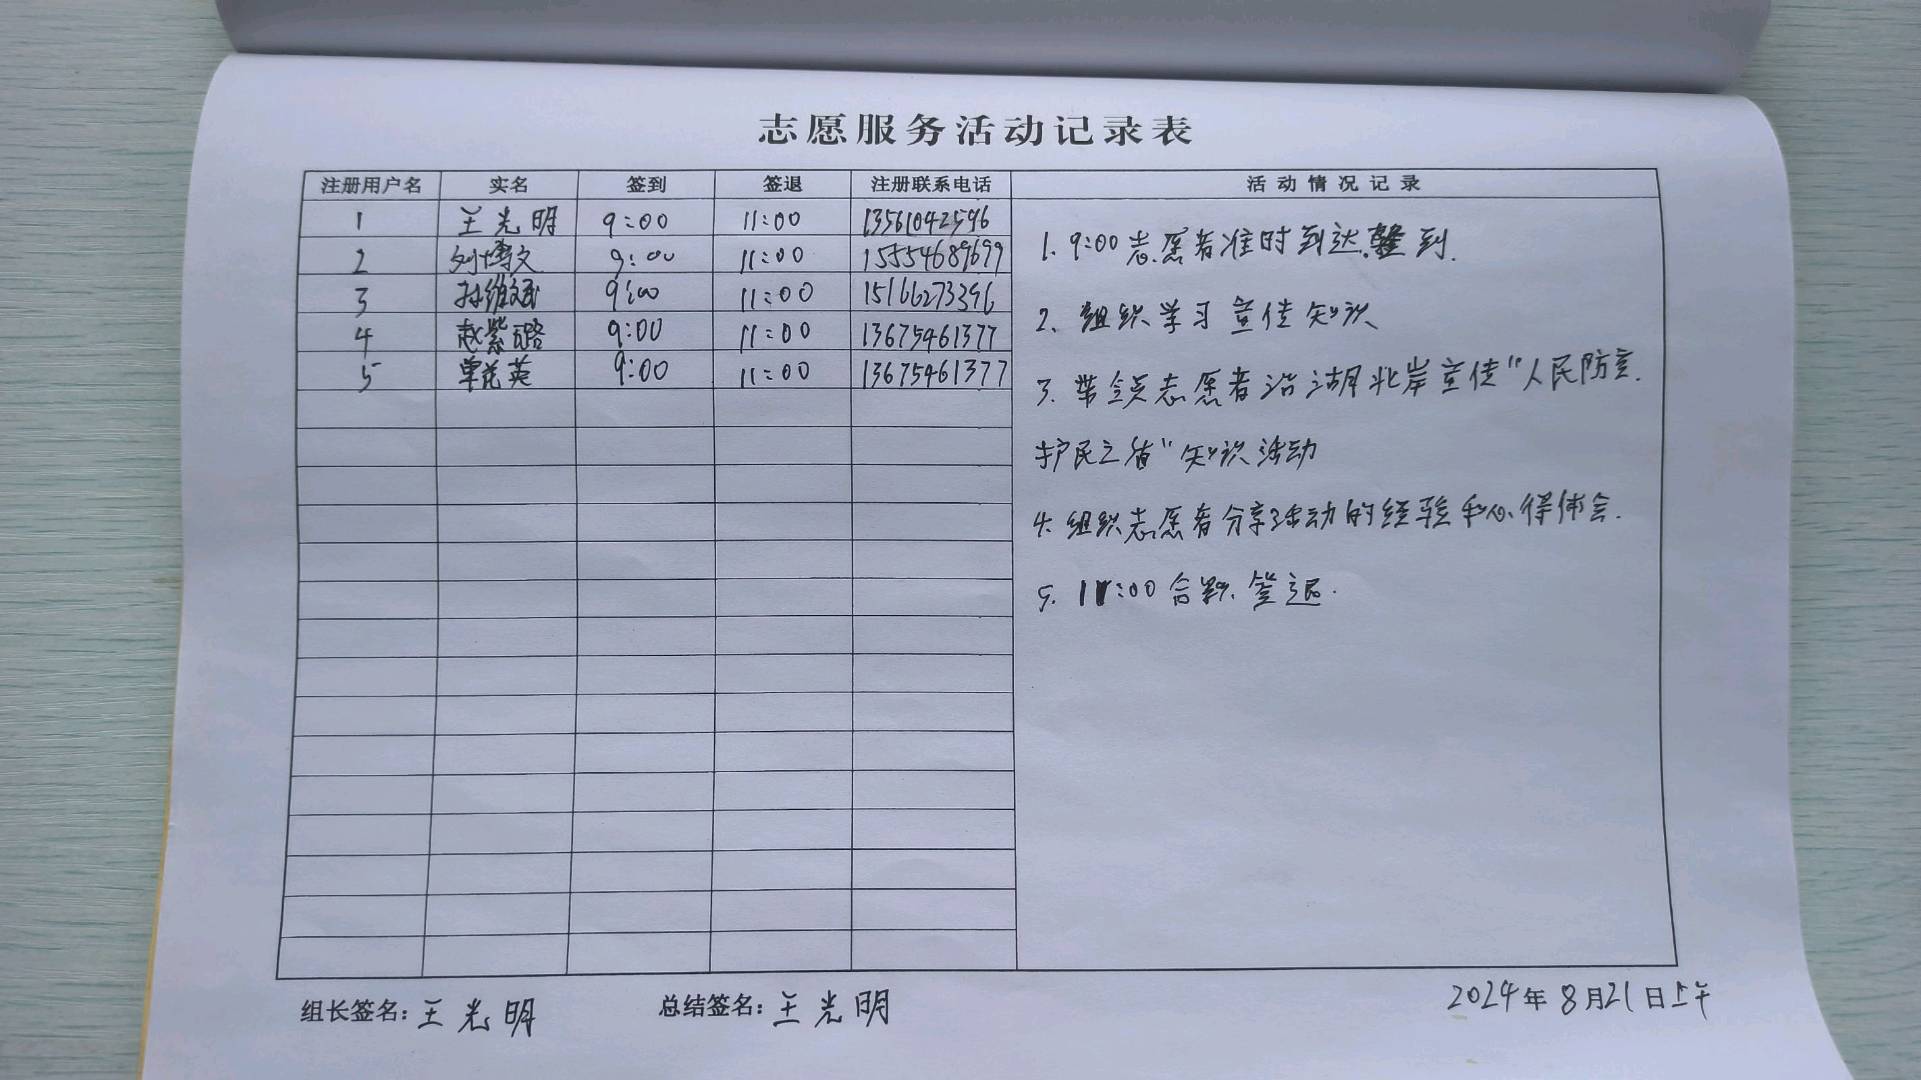 志愿服务活动记录表
注册用户名 实名 签到 签退 注册联系电话 活动情况记录
1 王光明 9:00 11:00 13561042596
2 刘博文 9:00 11:00 15554689699
3 孙维斌 9:00 11:00 15166273396
4 赵紫璐 9:00 11:00 13675461377
5 单花英 9:00 11:00 13675461377
1. 9:00志愿者准时到达.签到.
2. 组织学习宣传知识
3. 带领志愿者沿湖北岸宣传"人民防空.
护民之盾"知识活动
4. 组织志愿者分享活动的经验和心得体会.
5. 11:00合影.签退.
组长签名:王光明 总结签名:王光明 2024年8月21日上午